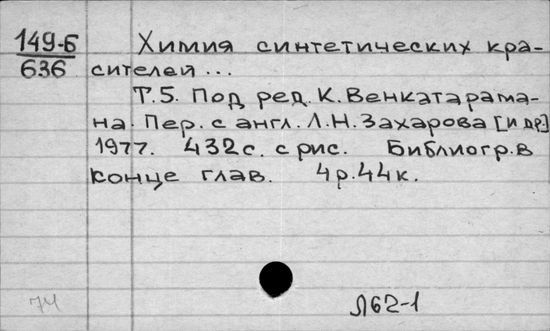 149-Б
636
Химия синтетических кра-
сителей...
Т.5. Под ред. К. Венкатарама-
на. Пер. с англ. Л.Н. Захарова [и др]
1977. 432с. с рис. Библиогр. в
конце глав. 4р.44к.
74
Л62-1